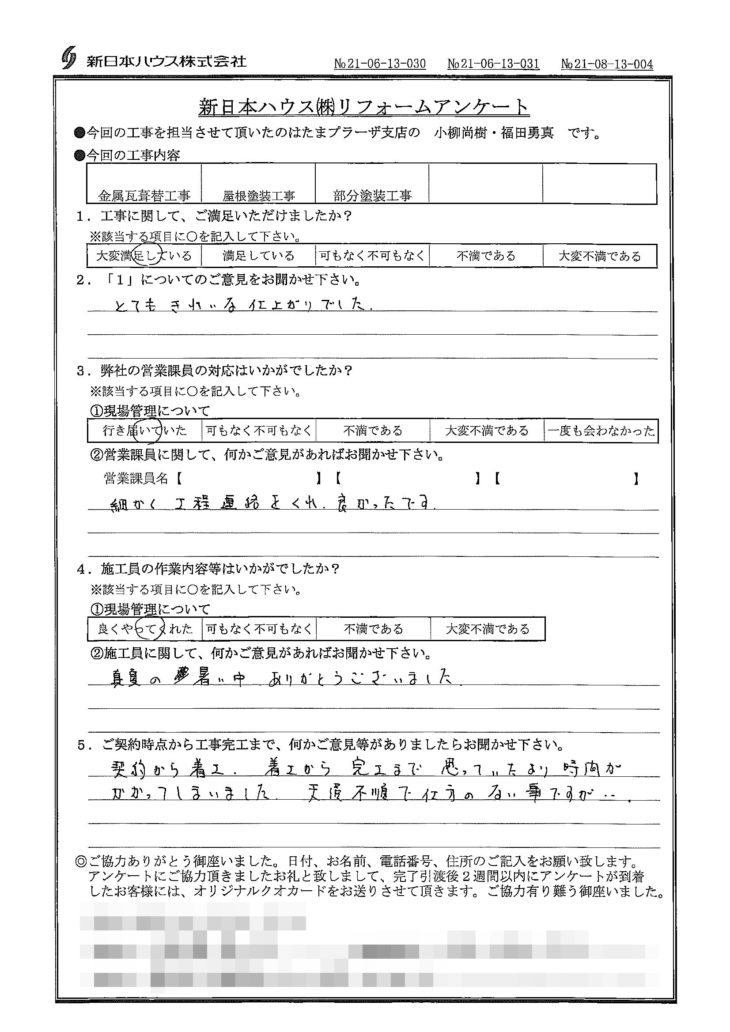 新日本ハウス株式会社 №21-06-13-030 №21-06-13-031 №21-08-13-004
新日本ハウス㈱リフォームアンケート
●今回の工事を担当させて頂いたのはたまプラーザ支店の 小柳尚樹・福田勇真 です。
●今回の工事内容
金属瓦葺替工事 屋根塗装工事 部分塗装工事
1．工事に関して、ご満足いただけましたか？
※該当する項目に○を記入して下さい。
大変満足している 満足している 可もなく不可もなく 不満である 大変不満である
2．「1」についてのご意見をお聞かせ下さい。
とてもきれいな仕上がりでした．
3．弊社の営業課員の対応はいかがでしたか？
※該当する項目に○を記入して下さい。
①現場管理について
行き届いていた 可もなく不可もなく 不満である 大変不満である 一度も会わなかった
②営業課員に関して、何かご意見があればお聞かせ下さい。
営業課員名【 】【 】【 】
細かく工程連絡をくれ．良かったです．
4．施工員の作業内容等はいかがでしたか？
※該当する項目に○を記入して下さい。
①現場管理について
良くやってくれた 可もなく不可もなく 不満である 大変不満である
②施工員に関して、何かご意見があればお聞かせ下さい。
真夏の暑い中 ありがとうございました．
5．ご契約時点から工事完工まで、何かご意見等がありましたらお聞かせ下さい。
契約から着工．着工から完工まで思っていたより時間が
かかってしまいました．天候不順で仕方のない事ですが…．
◎ご協力ありがとう御座いました。日付、お名前、電話番号、住所のご記入をお願い致します。
アンケートにご協力頂きましたお礼と致しまして、完了引渡後2週間以内にアンケートが到着
したお客様には、オリジナルクオカードをお送りさせて頂きます。ご協力有り難う御座いました。